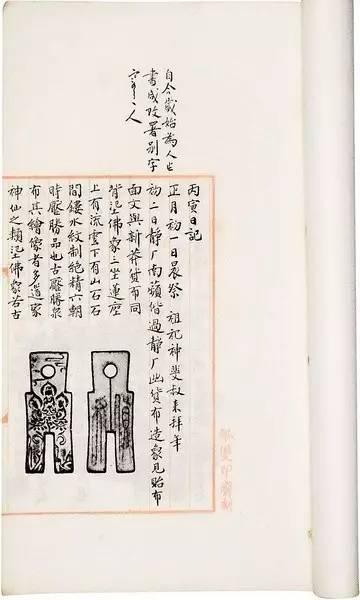 自今歲始為人
書成改署別字
人
丙寅日記
正月初一日晨祭 祖祀神斐叔來拜年
初二日静厂南蘋偕過静厂貨布造象見貽布
面文與新莽貨布同
背佛象三坐蓮座
上有流雲下有山石石
間鏤水紋制絶精六朝
時壓勝品也古壓勝泉
布具繪像者多道家
神仙之類佛象者古